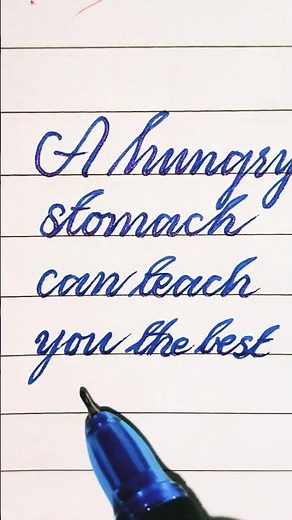 A hungry
stomach
can teach
you the best